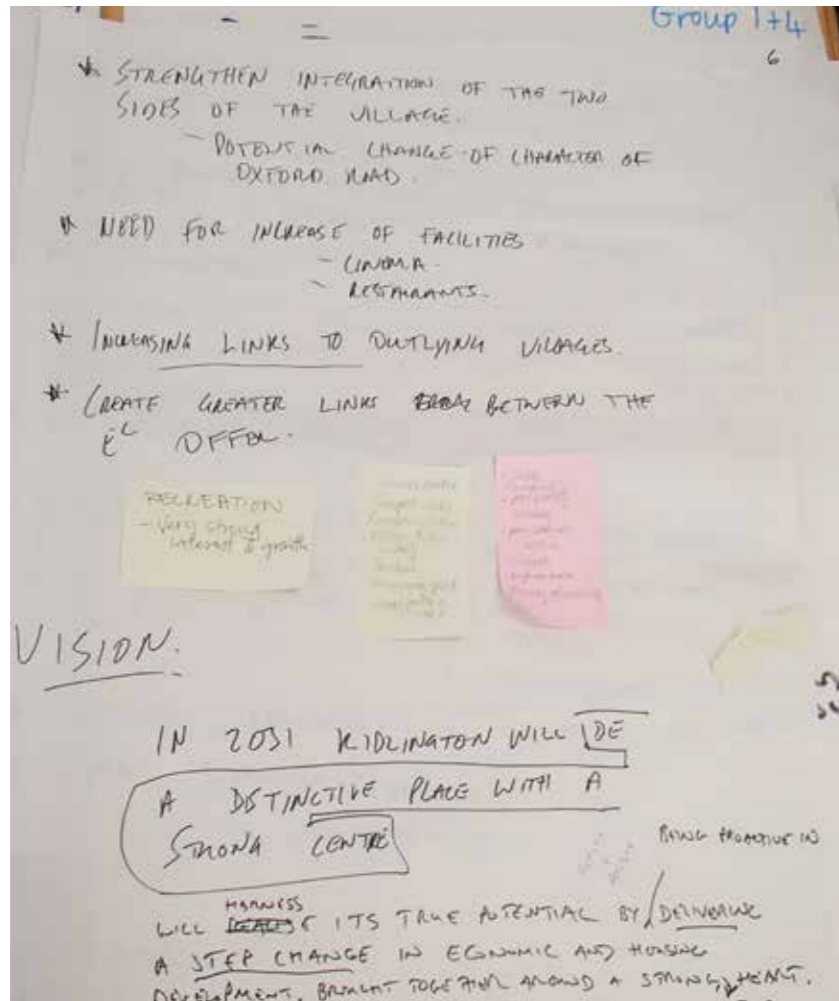 Group 1+4
6
* STRENGTHEN INTEGRATION OF THE TWO
SIDES OF THE VILLAGE.
- POTENTIAL CHANGE OF CHARACTER OF
OXFORD ROAD.
* NEED FOR INCREASE OF FACILITIES
- CINEMA.
- RESTAURANTS.
* INCREASING LINKS TO OUTLYING VILLAGES.
* CREATE GREATER LINKS BETWEEN THE
OFFER.
RECREATION
- Very strong
interest & growth
VISION.
IN 2031 KIDLINGTON WILL BE
A DISTINCTIVE PLACE WITH A
STRONG CENTRE
BEING PROACTIVE IN
HARNESS
WILL ITS TRUE POTENTIAL BY DELIVERING
A STEP CHANGE IN ECONOMIC AND HOUSING
DEVELOPMENT, BROUGHT TOGETHER AROUND A STRONG HEART.